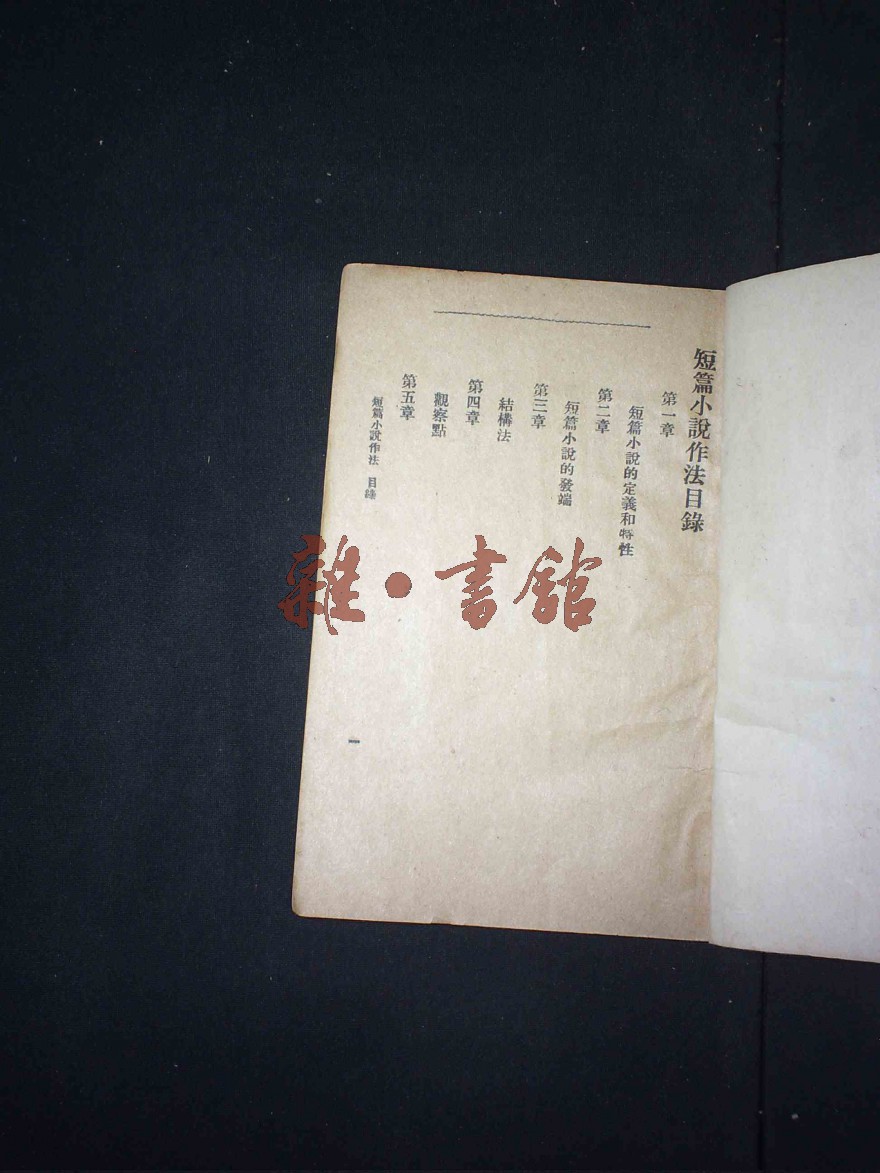 短篇小說作法目錄
第一章
短篇小說的定義和特性
第二章
短篇小說的發端
第三章
結構法
第四章
觀察點
第五章
短篇小說作法 目錄
一
雜·書館